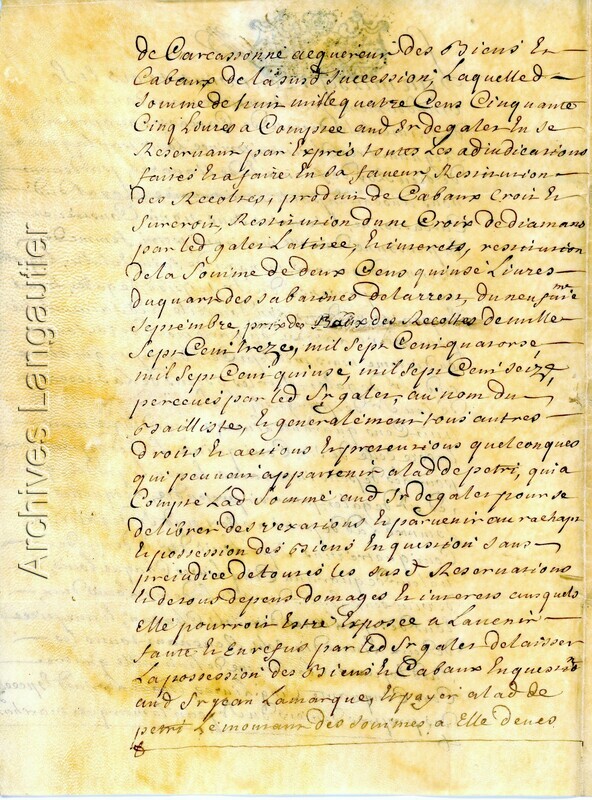 de Carcassonne acquereur des Biens Et
Cabaux de la susd succession, Laquelle d
Somme de huit mille quatre Cens Cinquante
Cinq Livres a Comptée aud Sr de gales En se
Reservant par Exprés toutes Les adiudications
faites Et a faire En sa faveur, Restitution
des Recoltes, produit de Cabaux Croit Et
Surcroit, Restitution dune Croix de diamans
par led gales Latirée, Et interets, restitution
de la Somme de deux Cens quinse Livres
du quart des de larrest, du neufvie
Septembre, prix des Baux des Recoltes de mille
Sept Cens treze, mil Sept Cens quatorse,
mil Sept Cens quinse, mil Sept Cens seize,
percües par led Sr gales, au nom du
Bailliste, Et generalement tous autres
droits Et actions Et pretentions quelconques
qui peuvent appartenir a lad de petri, qui a
Compté Lad Somme aud Sr de gales pour se
delibrer des vexations Et parvenir au rachapt
Et possession des Biens En question sans
prejudice de toutes les susd Reservations
Et de tous depens domages Et interets ausquels
Elle pourroit Estre Exposée a Lavenir
faute Et En refus par led Sr gales de laisser
La possession des Biens Et Cabaux En question
aud Sr jean Lamarque, Et payer a lad de
petri Le montant des sommes a Elle deües
Archives Langautier